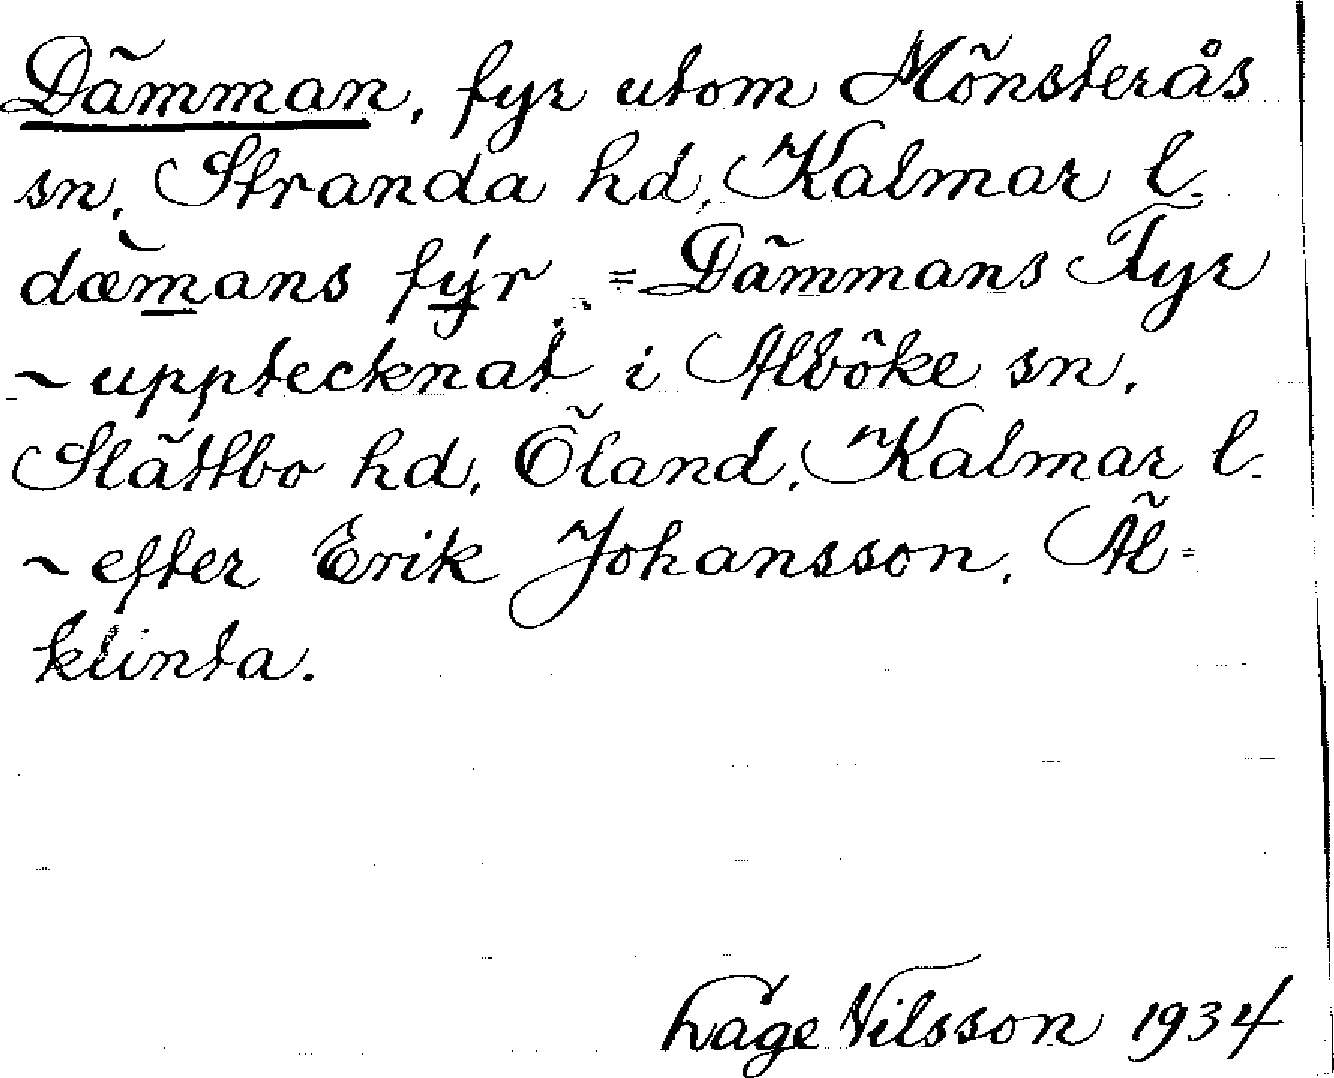 Dämman, fyr utom Mönsterås
sn, Stranda hd, Kalmar l.
dæ̀mans fýr = Dämmans Fyr
~ upptecknat i Alböke sn,
Slättbo hd, Öland, Kalmar l.
~ efter Erik Johansson, Äl-
klinta.
Låge Nilsson 1934